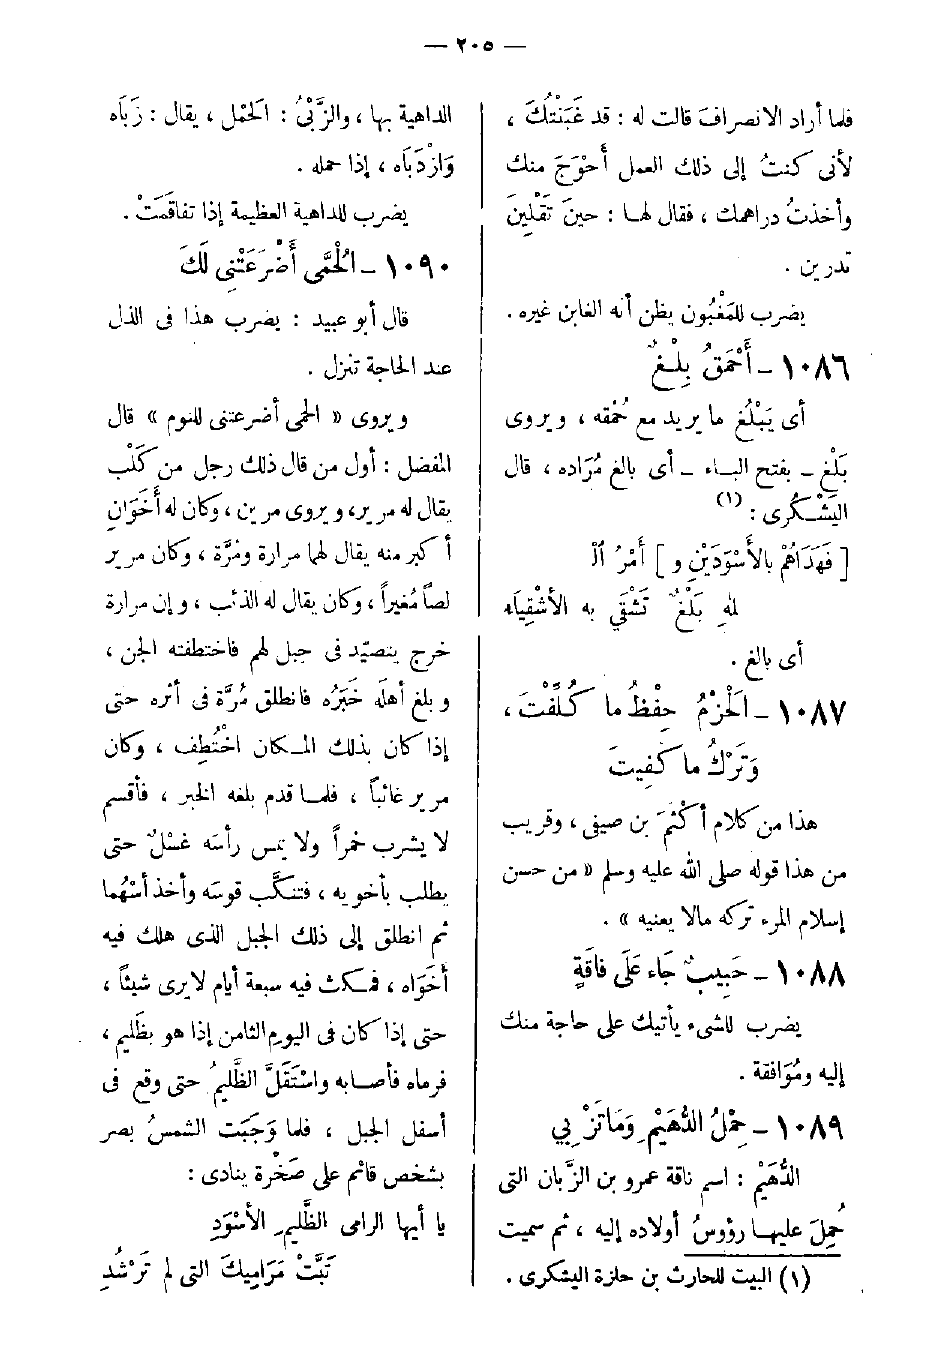 — ٢٠٥ —
فلما أراد الانصرافَ قالت له : قد غَبَنْتُكَ ،
لأنى كنتُ إلى ذلك العمل أَحْوَجَ منك
وأخذتُ دراهمك ، فقال لها : حينَ تَقْلِينَ
تدرين .
يضرب للمَغْبُون يظن أنه الغابن غيره .
١٠٨٦ – أَحْمَقُ بِلْغٌ
أى يَبْلُغ ما يريد مع حُمْقه ، ويروى
بَلْغ – بفتح الباء – أى بالغ مُرَاده ، قال
اليَشْكُرى : (١)
[ فَهَدَاهُمْ بالأَسْوَدَيْنِ و ] أَمْرُ الْـ
لهِ بَلْغٌ تَشْقَى به الأشْقِيَاء
أى بالغ .
١٠٨٧ – الَحْزْمُ حِفْظُ ما كُلِّفْتَ ،
وَتَرْكُ ما كُفِيتَ
هذا من كلام أَكْثَمَ بن صيفى ، وقريب
من هذا قوله صلى الله عليه وسلم « من حسن
إسلام المرء تركه مالا يعنيه » .
١٠٨٨ – حَبِيبٌ جَاء عَلَى فاقَةٍ
يضرب للشىء يأتيك على حاجة منك
إليه ومُوَافقة .
١٠٨٩ – حِمْلُ الدُّهَيْمِ وَمَا تَزْبِي
الدُّهَيْم : اسم ناقة عمرو بن الزَّبان التى
حُمِلَ عليها رؤوسُ أولاده إليه ، ثم سميت
(١) البيت للحارث بن حلزة اليشكرى .
الداهية بها ، والزَّبْىُ : الحَمْل ، يقال : زَبَاه
وَازْدَبَاه ، إذا حمله .
يضرب للداهية العظيمة إذا تفاقَمَتْ .
١٠٩٠ – الُحْمَّى أَضْرَعَتْنِى لَكَ
قال أبو عبيد : يضرب هذا فى الذل
عند الحاجة تنزل .
ويروى « الحمى أضرعتنى للنوم » قال
المفضل : أول من قال ذلك رجل من كَلْب
يقال له مرير، ويروى مرين ، وكان له أَخَوَانِ
أكبر منه يقال لهما مرارة ومُرَّة ، وكان مرير
لصاً مُغيراً ، وكان يقال له الذئب ، وإن مرارة
خرج يتصيّد فى جبل لهم فاختطفته الجن ،
وبلغ أهلَه خَبَرُه فانطلق مُرَّة فى أثره حتى
إذا كان بذلك المـكان اخْتُطِف ، وكان
مرير غائباً ، فلما قدم بلغه الخبر ، فأقسم
لا يشرب خمراً ولا يمس رأسَه غسْلٌ حتى
يطلب بأخويه ، فتنكَّب قوسَه وأخذ أَسْهُما
ثم انطلق إلى ذلك الجبل الذى هلك فيه
أخَوَاه ، فمكث فيه سبعة أيام لايرى شيئاً ،
حتى إذا كان فى اليوم الثامن إذا هو بظَليم ،
فرماه فأصابه واسْتَقَلَّ الظَّليمُ حتى وقع فى
أسفل الجبل ، فلما وَجَبَت الشمسُ بصر
بشخص قائم على صَخْرة ينادى :
يا أيها الرامى الظَّليمِ الأسْوَدِ
تَبَّتْ مَرَامِيكَ التى لم تَرْشُدِ